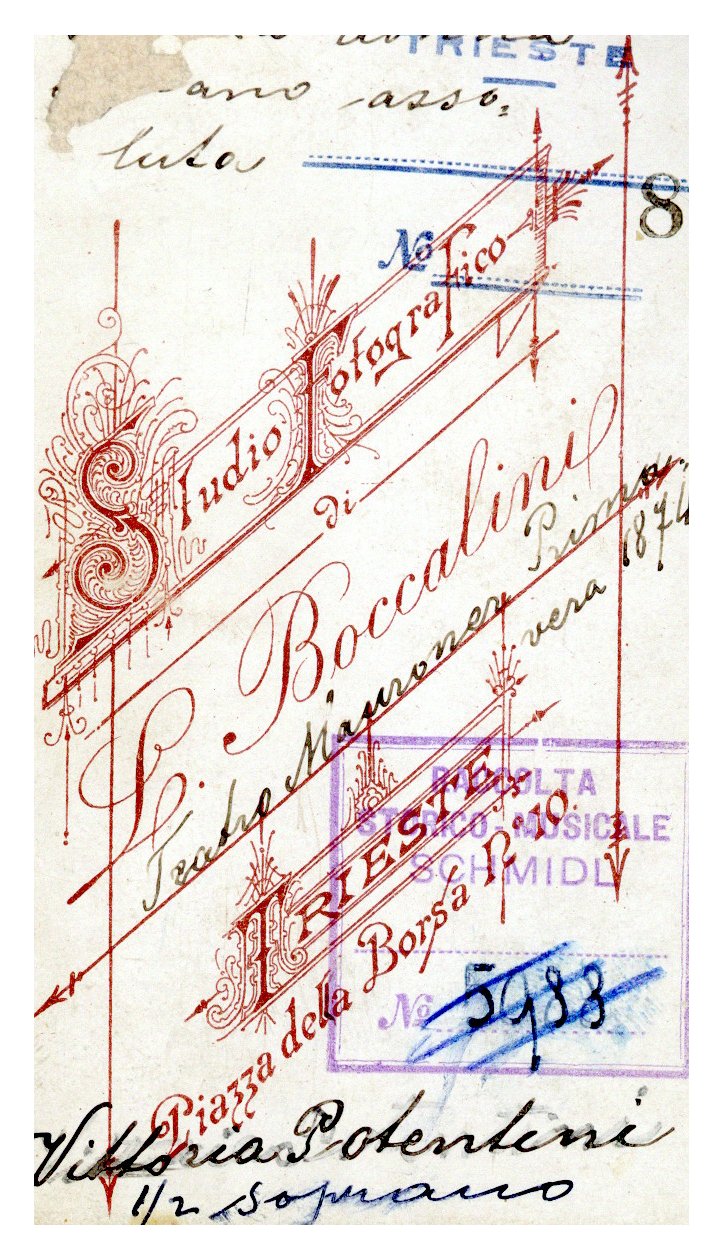 TRIESTE
ano asso=
luta
8
No
Studio Fotografico
di
L. Boccalini
Teatro Mauroner Prima=
vera 1874
TRIESTE
Piazza della Borsa No. 10.
RACCOLTA
STORICO-MUSICALE
SCHMIDL
No 5983
Vittoria Potentini
1/2 soprano